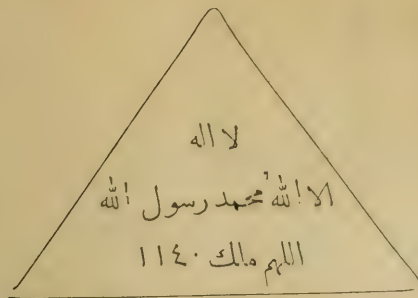 لا اله
الا الله محمد رسول الله
اللهم مالك ١١٤٠